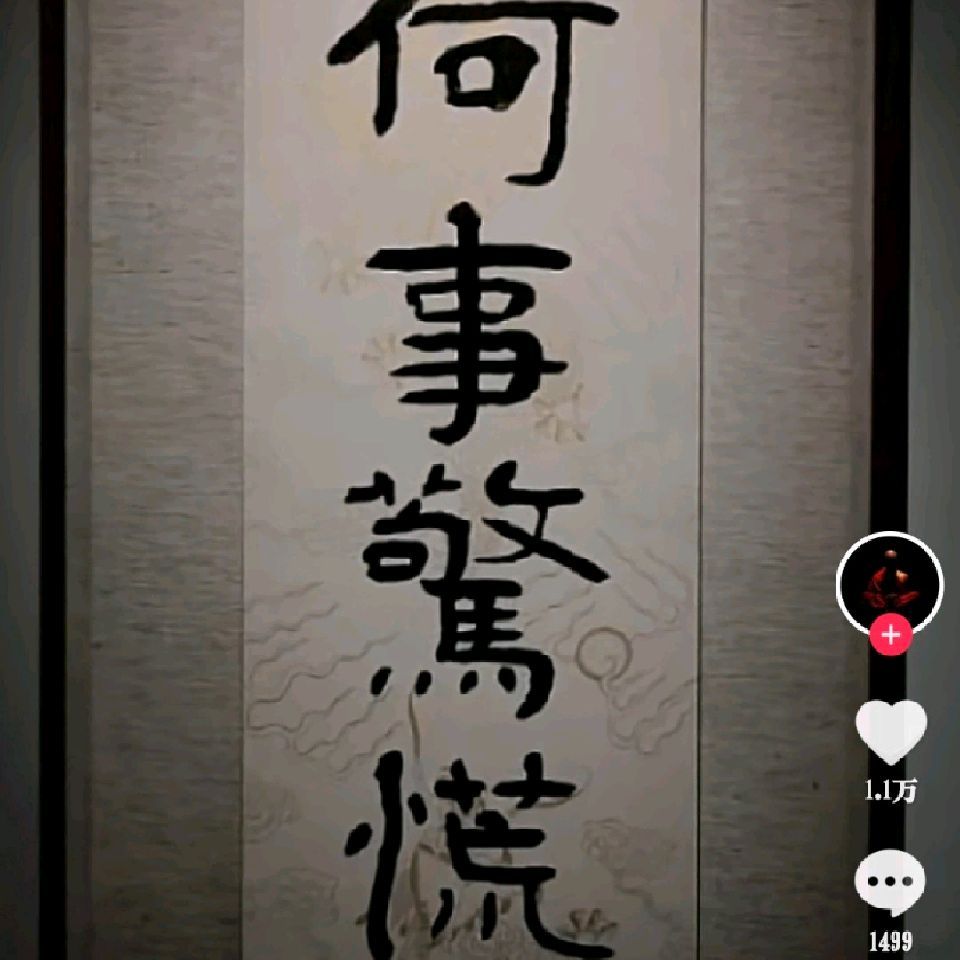 何事驚慌
1.1万
1499